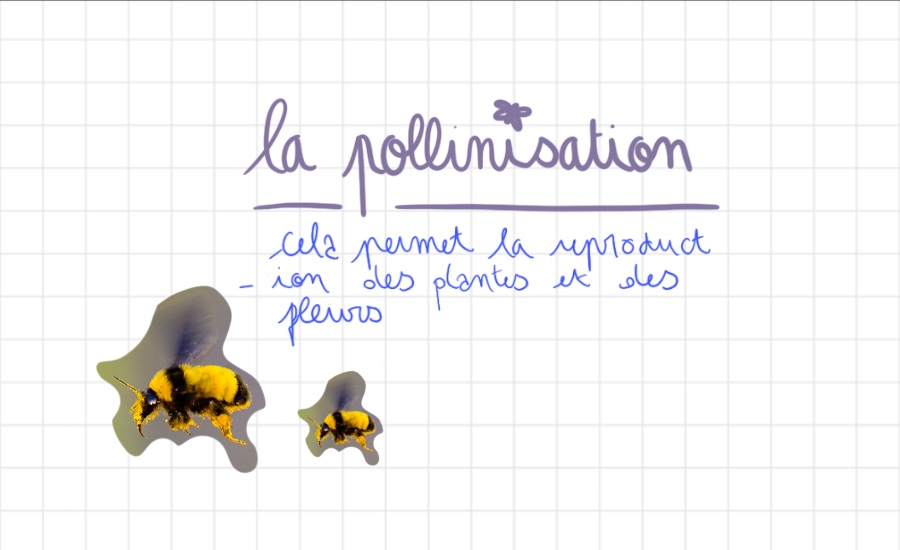 la pollinisation
cela permet la reproduct
- ion des plantes et des
fleurs